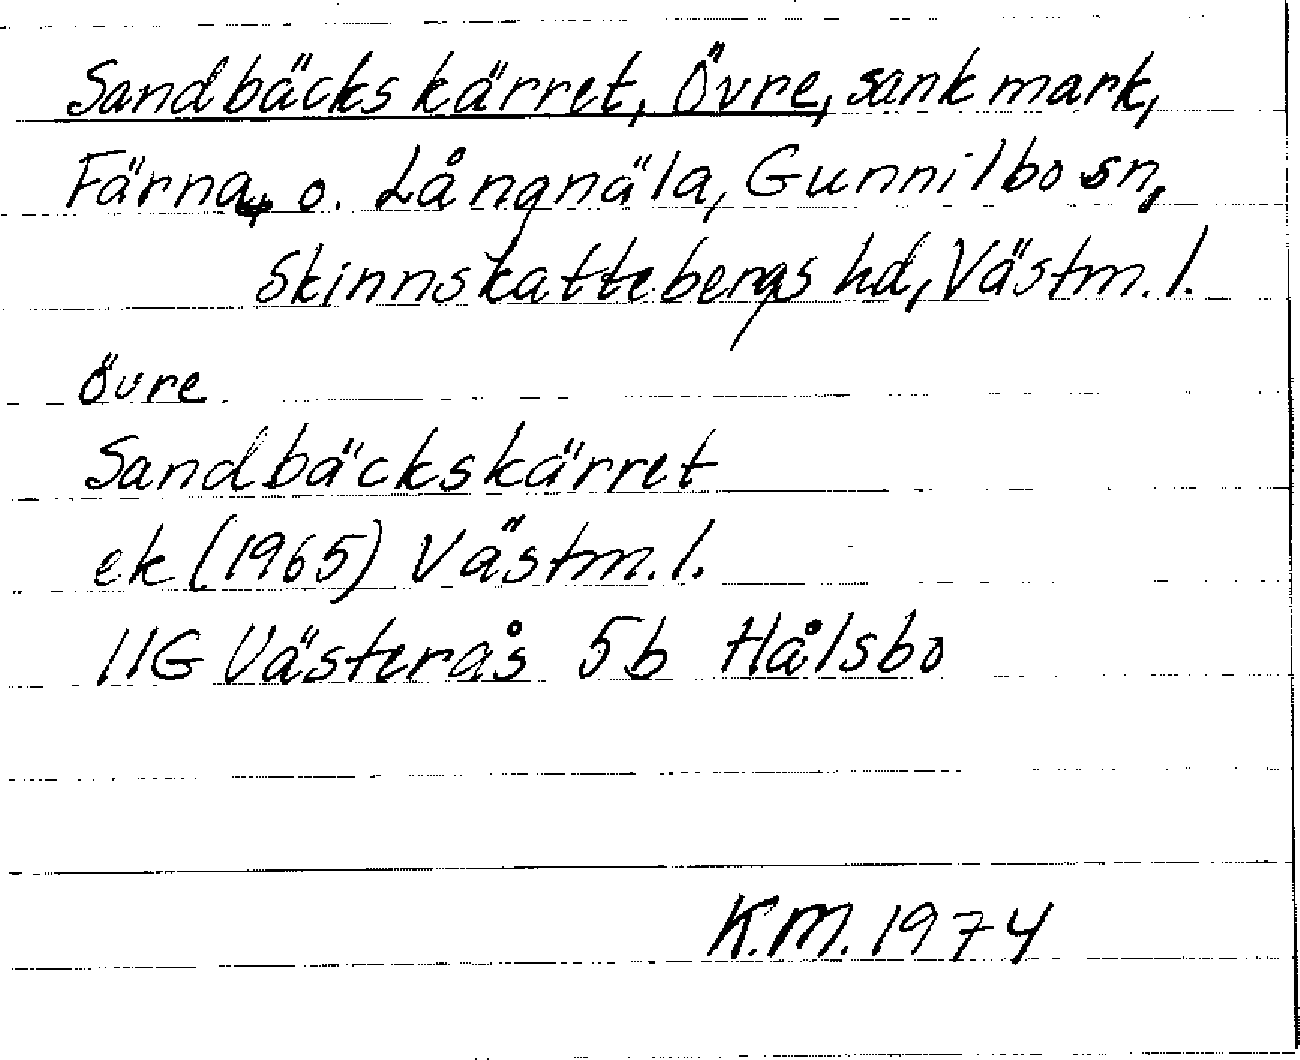 Sandbäckskärret, Övre, sank mark,
Färna, o. Långnäla, Gunnilbo sn,
Skinnskattebergs hd, Västm. l.
Övre
Sandbäckskärret
ek (1965) Västm. l.
11G Västerås 5b Hålsbo
K.M. 1974